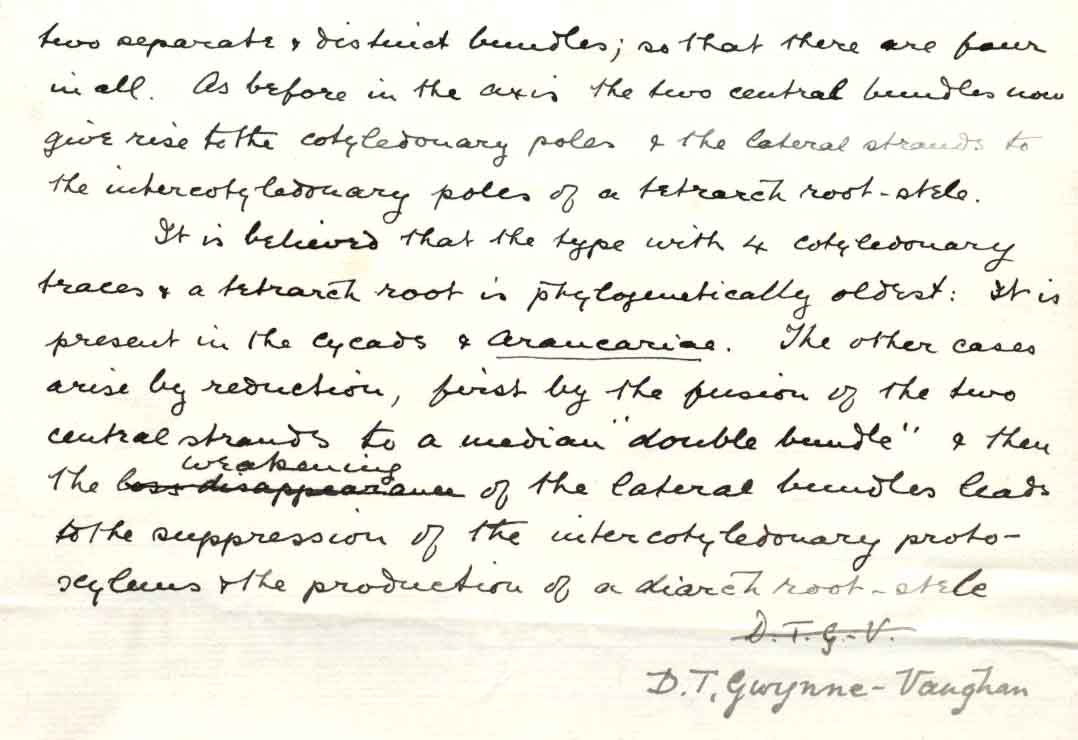 two separate & distinct bundles; so that there are four
in all. As before in the axis the two central bundles now
give rise to the cotyledonary poles & the lateral strands to
the intercotyledonary poles of a tetrarch root-stele.
It is believed that the type with 4 cotyledonary
traces & a tetrarch root is phylogenetically oldest: It is
present in the cycads & Araucariae. The other cases
arise by reduction, first by the fusion of the two
central strands to a median "double bundle" & then
weakening
the loss disappearance of the lateral bundles leads
to the suppression of the intercotyledonary proto-
xylems & the production of a diarch root-stele
D.T.G-V.
D.T. Gwynne-Vaughan